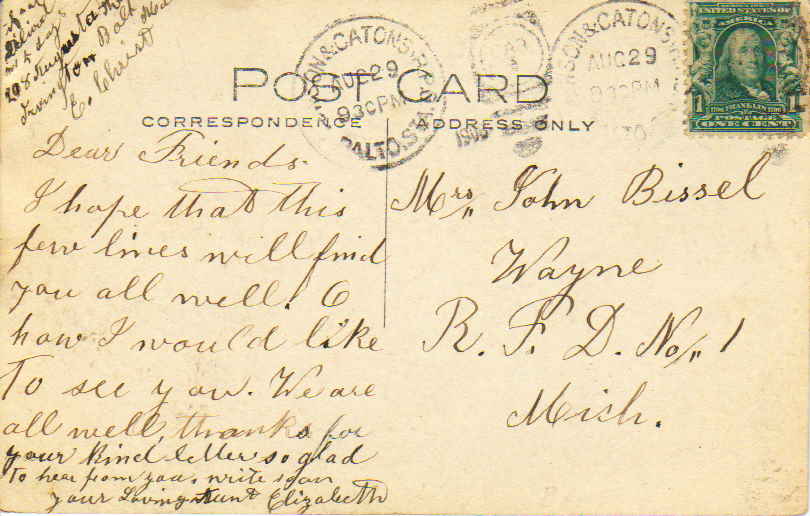 298 Augusta Ave
Irvington Balt Md
E. Christ
POST CARD
CORRESPONDENCE
ADDRESS ONLY
AUG 29
930PM
BALTO. STA.
1905
SON & CATONS
AUG 29
930PM
UNITED STATES OF
AMERICA
1 FRANKLIN 1
POSTAGE
ONE CENT
Dear Friends.
I hope that this
few lines will find
you all well. O
how I would like
to see you. We are
all well, thanks for
your kind letter so glad
to hear from you. write soon
your Loving Aunt Elizabeth
Mrs John Bissel
Wayne
R. F. D. No 1
Mich.